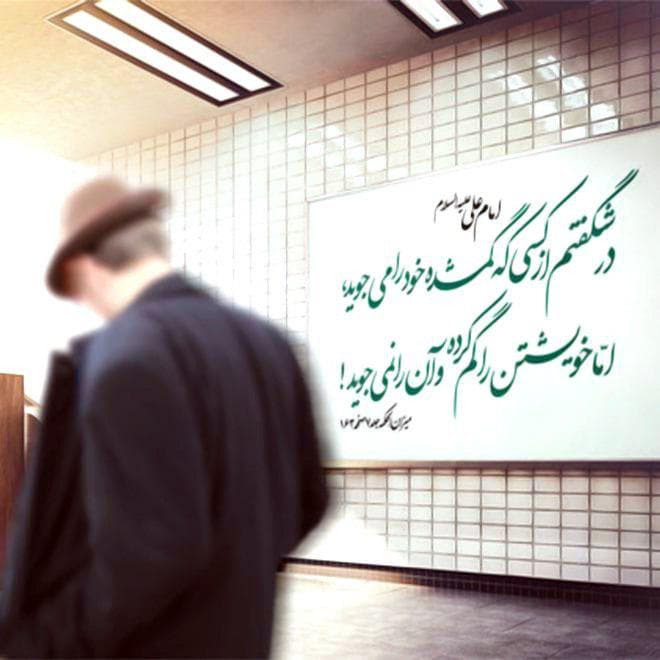 امام علی علیه‌السلام
در شگفتم از کسی که گمشده خود را می جوید،
امّا خویشتن را گم کرده و آن را نمی جوید!
میزان الحکمه جلد ۷ صفحه ۱۶۳